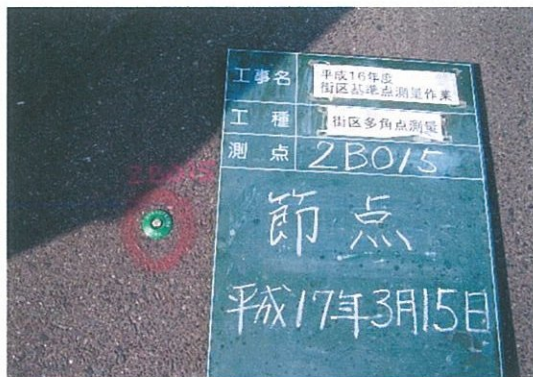 工事名
平成16年度
街区基準点測量作業
工種
街区多角点測量
測点
2B015
節点
平成17年3月15日
2B015